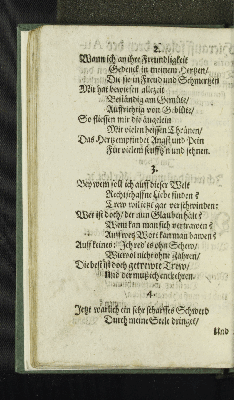 2.
Wann ich an ihre Freundligkeit
Gedenck in meinem Hertzen/
Die sie in Freud und Schmertzen
Mir hat bewiesen allezeit
Beständig am Gemüte/
Auffrichtig von G blüte/
So fliessen mir die äugelein
Mit vielen heissen Thränen/
Das Hertz empfindet Angst und Pein
Für vielem seufftzn und sehnen.
3.
Bey wem soll ich auff dieser Welt
Rechtschaffne Liebe finden?
Trew wil jetzt gar verschwinden:
Wer ist doch/ der nun Glauben hält?
Wem kan man sich vertrawen?
Auff wes Wort kan man bawen?
Auff keines: Ich red es ohn Schew/
Wiewol nicht ohne Zähren/
Die best ist doch getrewte Trew/
Und der muß ich entbehren.
4.
Jetzt warlich ein sehr scharffes Schwerd
Durch meine Seele dringet/
Und